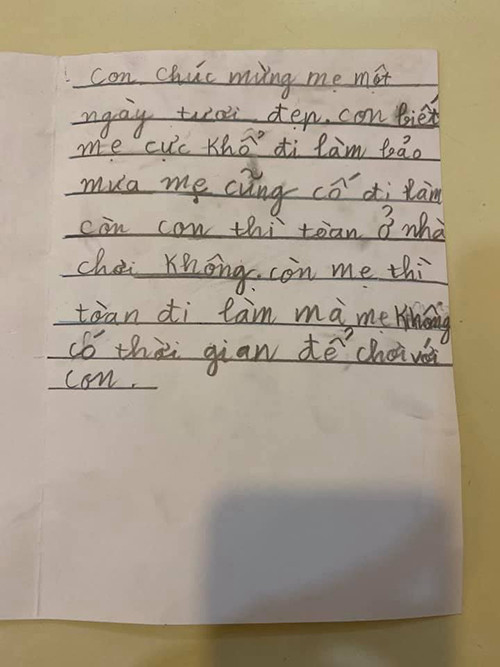 con chúc mừng mẹ một
ngày tươi đẹp. con biết
mẹ cực khổ đi làm bảo
mưa mẹ cũng cố đi làm
còn con thì toàn ở nhà
chơi không. còn mẹ thì
toàn đi làm mà mẹ không
có thời gian để chơi với
con.